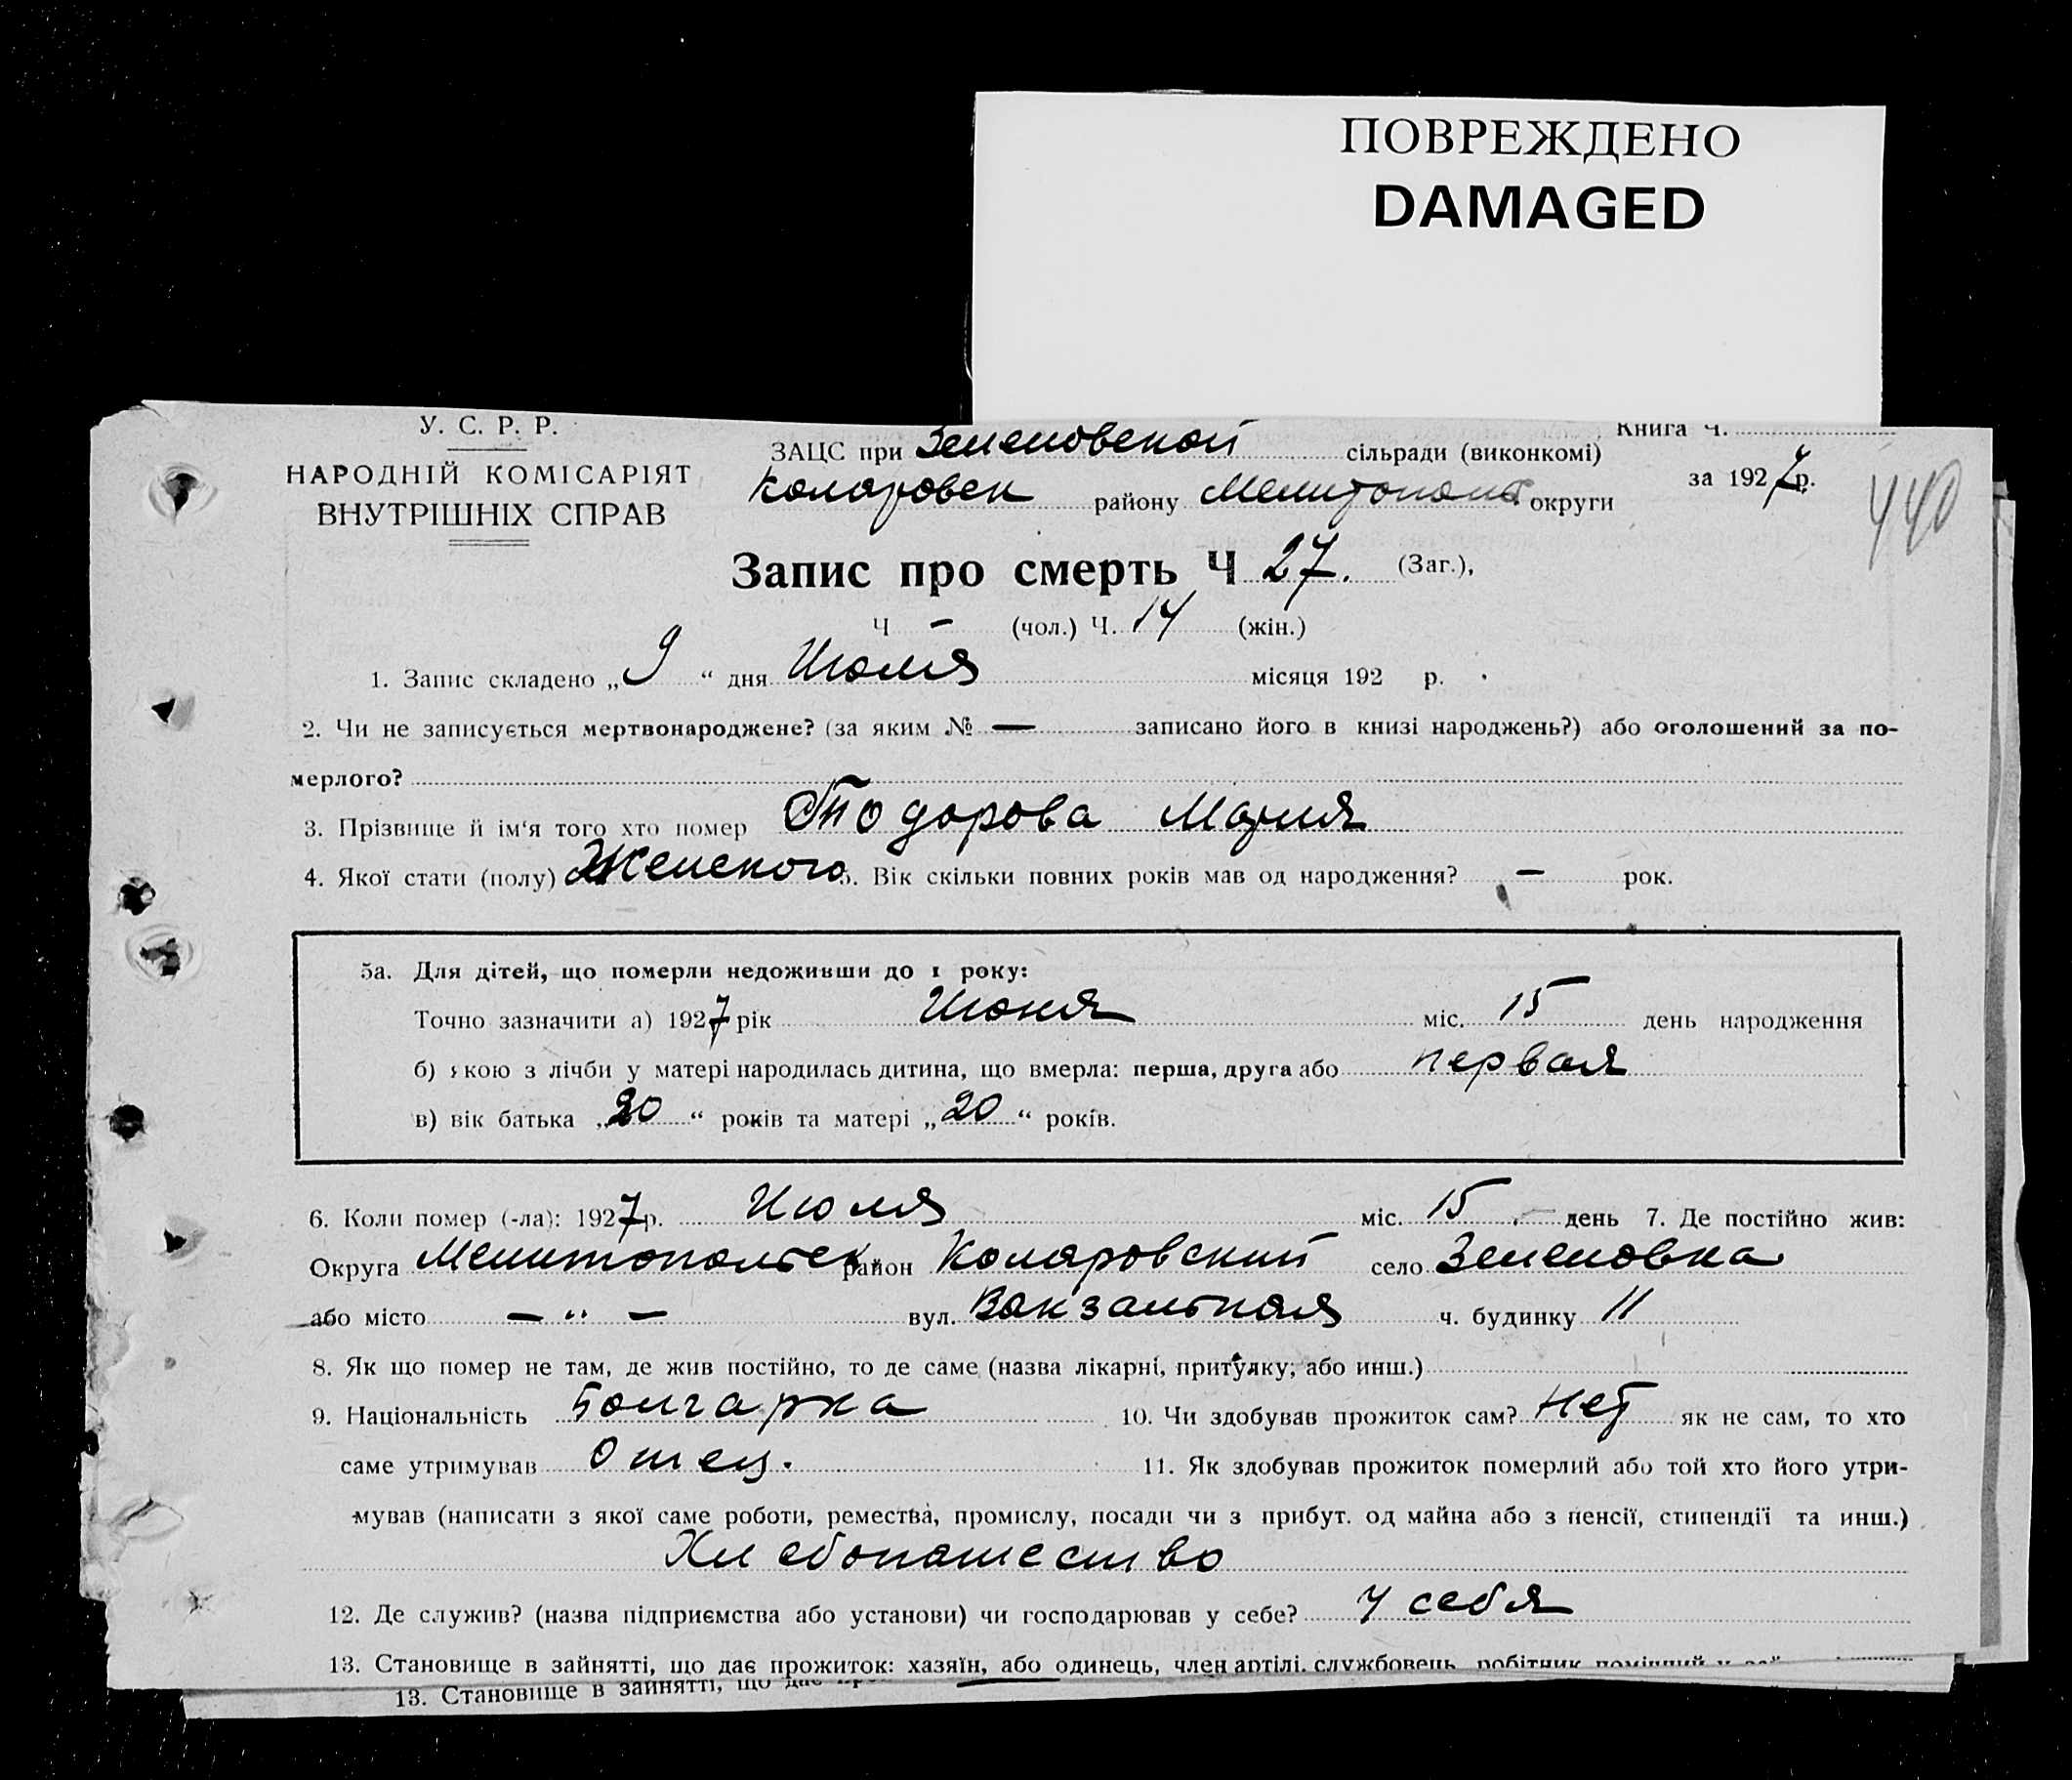 ПОВРЕЖДЕНО
DAMAGED
У. С. Р. Р.
НАРОДНІЙ КОМІСАРІЯТ
ВНУТРІШНІХ СПРАВ
Книга Ч.
ЗАЦС при Зеленовской сільради (виконкомі)
за 1927 р.
Коларовск району Мелитопол округи
440
Запис про смерть Ч 27. (Заг.),
Ч — (чол.) Ч. 14 (жін.)
1. Запис складено „ 9 “ дня Июля місяця 192 р.
2. Чи не записується мертвонароджене? (за яким № — записано його в книзі народжень?) або оголошений за по-
мерлого?
3. Прізвище й ім‘я того хто помер Тодорова Мария
4. Якої стати (полу) Женского 5. Вік скільки повних років мав од народження? — рок.
5а. Для дітей, що померли недоживши до 1 року:
Точно зазначити а) 1927 рік Июня міс. 15 день народження
б) якою з лічби у матері народилась дитина, що вмерла: перша, друга або первая
в) вік батька „ 20 “ років та матері „ 20 “ років.
6. Коли помер (-ла): 1927 р. Июля міс. 15 день 7. Де постійно жив:
Округа Мелитопольск район Коларовский село Зеленовка
або місто — „ — вул. Вокзальная ч. будинку 11
8. Як що помер не там, де жив постійно, то де саме (назва лікарні, притулку, або инш.)
9. Національність Болгарка 10. Чи здобував прожиток сам? Нет як не сам, то хто
саме утримував Отец. 11. Як здобував прожиток померлий або той хто його утри-
мував (написати з якої саме роботи, ремества, промислу, посади чи з прибут. од майна або з пенсії, стипендії та инш.)
Хлебопашество
12. Де служив? (назва підприємства або установи) чи господарював у себе? у себя
13. Становище в зайнятті, що дає прожиток: хазяїн, або одинець, член артілі, службовець, робітник
13. Становище в зайнятті, що дає